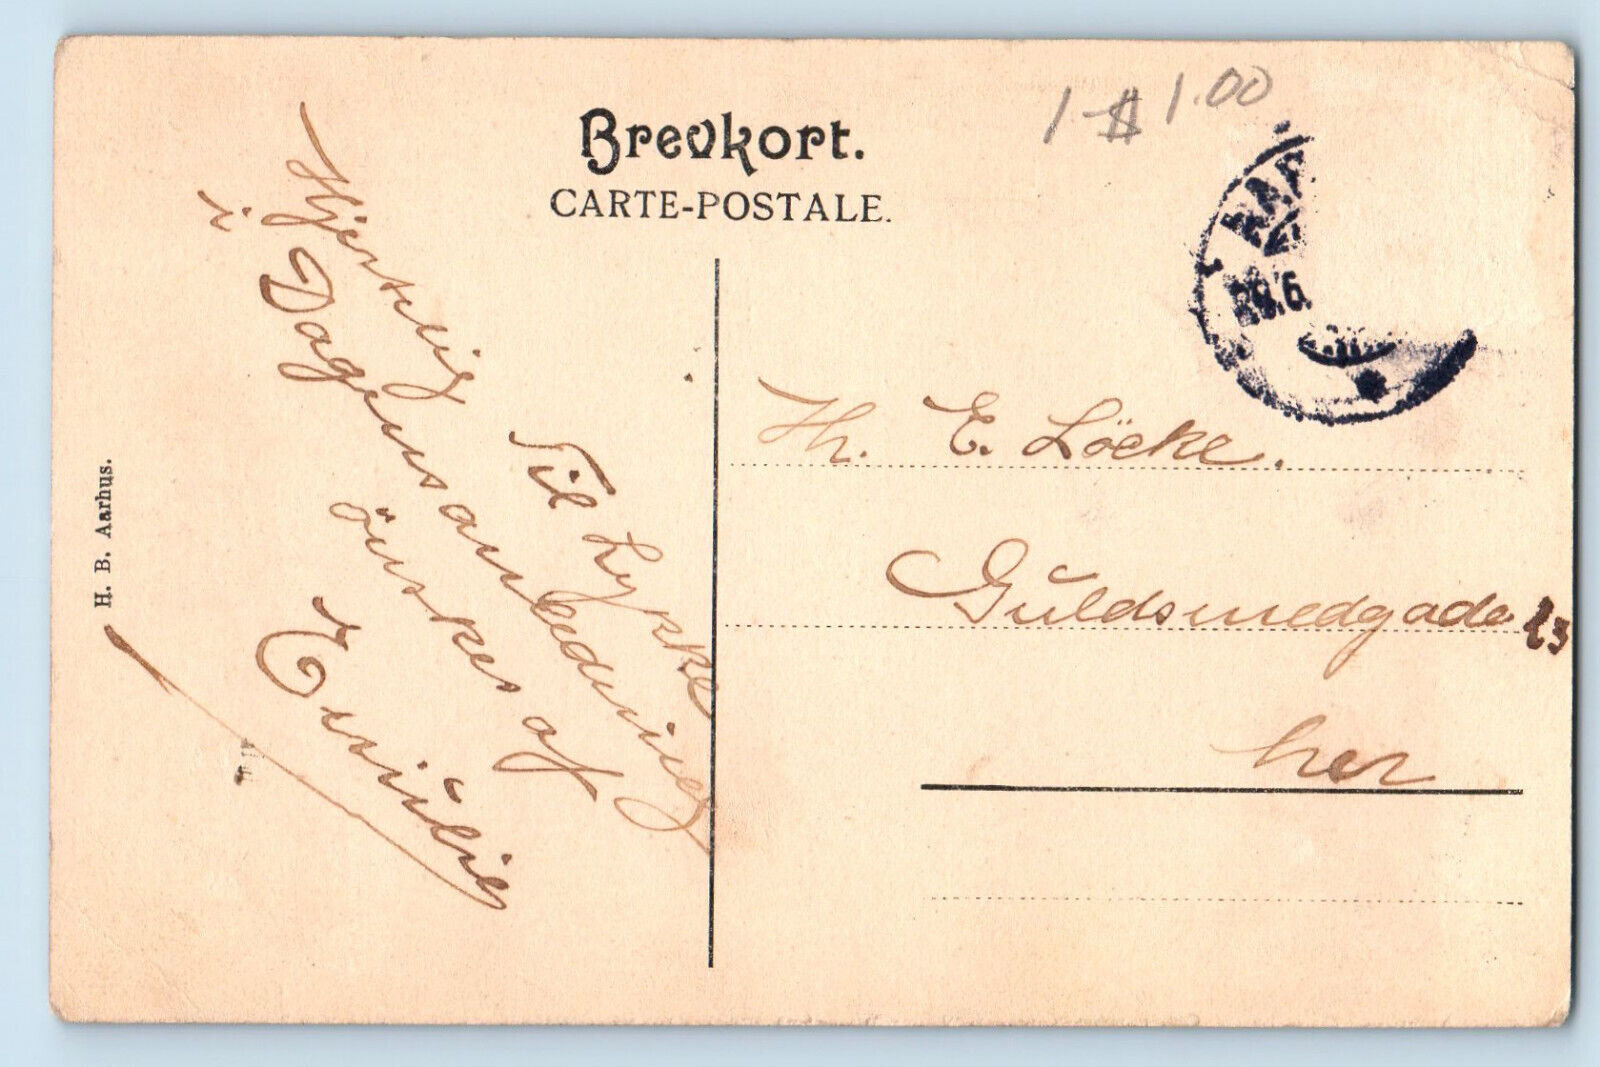 Brevkort.
CARTE-POSTALE.
1-$1.00
29.6.
H. B. Aarhus.
Hjertelig Til Lykke
i Dagens anledning
önskes af
Hr. E. Löcke.
Guldsmedgade 23
her